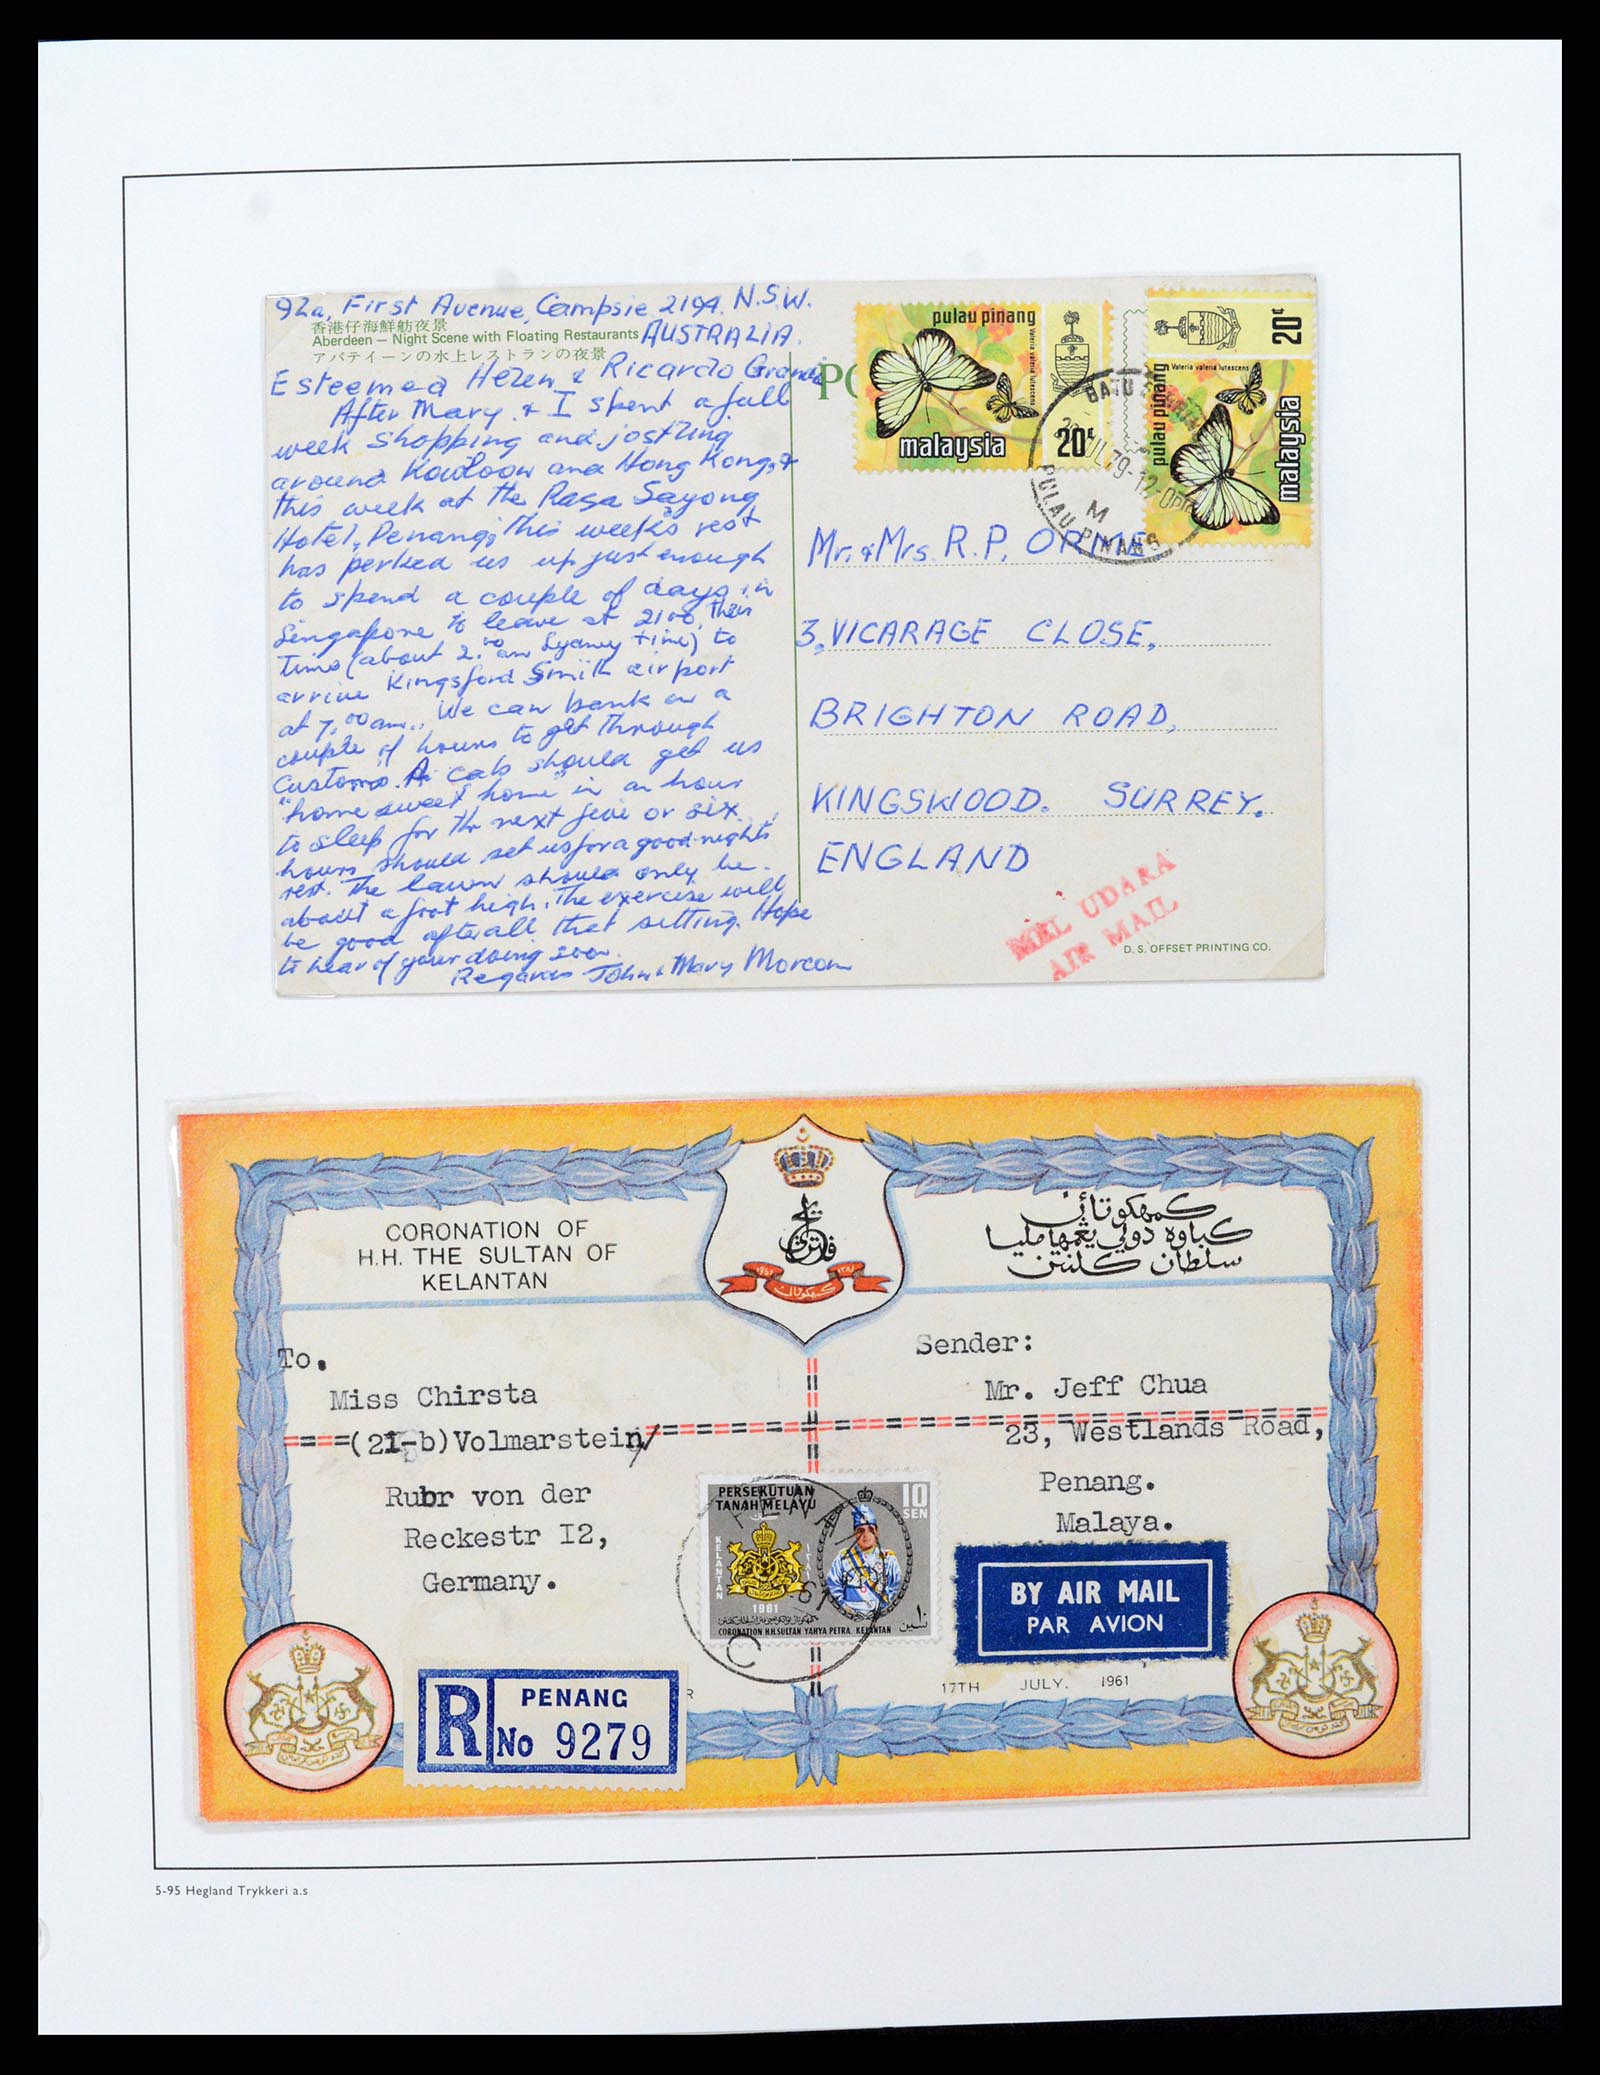 92a, First Avenue, Campsie 2194. N.S.W.
香港仔海鮮舫夜景
Aberdeen – Night Scene with Floating Restaurants AUSTRALIA.
アバディーンの水上レストランの夜景
Esteemed Helen & Ricardo Grande
After Mary & I spent a full
week shopping and jostling
around Kowloon and Hong Kong, &
this week at the Rasa Sayong
Hotel, Penang; this week's rest
has perked us up just enough
to spend a couple of days in
Singapore to leave at 2100, their
time (about 2.00 am Sydney time) to
arrive Kingsford Smith airport
at 7.00 am. We can bank on a
couple of hours to get through
Customs. A cab should get us
"home sweet home" in an hour
to sleep for the next five or six
hours should set us for a good night's
rest. The lawn should only be
about a foot high. The exercise will
be good after all that sitting. Hope
to hear of your doing soon.
Regards John & Mary Morcom
pulau pinang
Valeria valeria lutescens
malaysia
20¢
pulau pinang
Valeria valeria lutescens
malaysia
20¢
BATU
JUL 79-12-0PM
M
PULAU PINANG
Mr. & Mrs. R.P. ORME
3, VICARAGE CLOSE,
BRIGHTON ROAD,
KINGSWOOD. SURREY.
ENGLAND
MEL UDARA
AIR MAIL
D. S. OFFSET PRINTING CO.
CORONATION OF
H.H. THE SULTAN OF
KELANTAN
كمهكوتاٴن
كباوه دولي يڠمها مليا
سلطان كلنتن
١٩٦١
١٣٨١
كمهكوتاٴن
To.
Miss Chirsta
(21-b) Volmarstein/
Rubr von der
Reckestr I2,
Germany.
Sender:
Mr. Jeff Chua
23, Westlands Road,
Penang.
Malaya.
PERSEKUTUAN
TANAH MELAYU
10
SEN
KELANTAN
1961
CORONATION H.H. SULTAN YAHYA PETRA. KELANTAN
PENANG
C
BY AIR MAIL
PAR AVION
17TH JULY. 1961
R
PENANG
No 9279
5-95 Hegland Trykkeri a.s